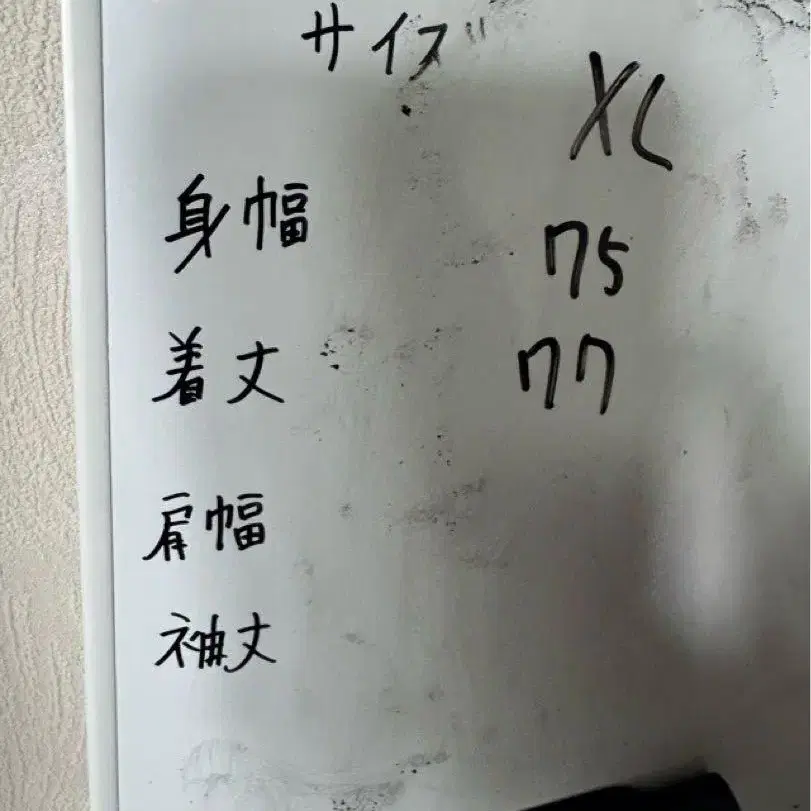 サイズ XL
身幅 75
着丈 77
肩幅
袖丈